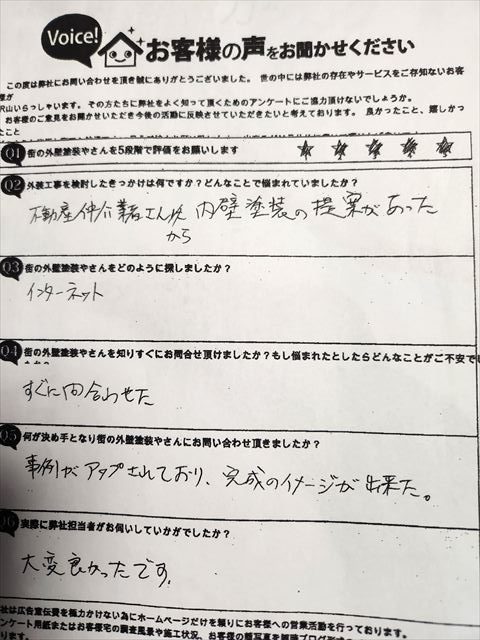 Voice!
お客様の声をお聞かせください
この度は弊社にお問い合わせを頂き誠にありがとうございました。 世の中には弊社の存在やサービスをご存知ないお客
様が
沢山いらっしゃいます。 その方たちに弊社をよく知って頂くためのアンケートにご協力頂けないでしょうか。
お客様のご意見をお聞かせいただき今後の活動に反映させていただきたいと考えております。 良かったこと、嬉しかっ
たこと
Q1 街の外壁塗装やさんを5段階で評価をお願いします ★ ★ ★ ★ ★
Q2 外装工事を検討したきっかけは何ですか？どんなことで悩まれていましたか？
不動産仲介業者さん 内壁塗装の提案があった
から
Q3 街の外壁塗装やさんをどのように探しましたか？
インターネット
Q4 街の外壁塗装やさんを知りすぐにお問合せ頂けましたか？もし悩まれたとしたらどんなことがご不安で
すぐに問合わせた
Q5 何が決め手となり街の外壁塗装やさんにお問い合わせ頂きましたか？
事例がアップされており、完成のイメージが出来た。
Q6 実際に弊社担当者がお伺いしていかがでしたか？
大変良かったです。
社は広告宣伝費を極力かけない為にホームページだけを頼りにお客様への営業活動を行っております。
ンケート用紙またはお客様宅の調査風景や施工状況、お客様の顔写真を